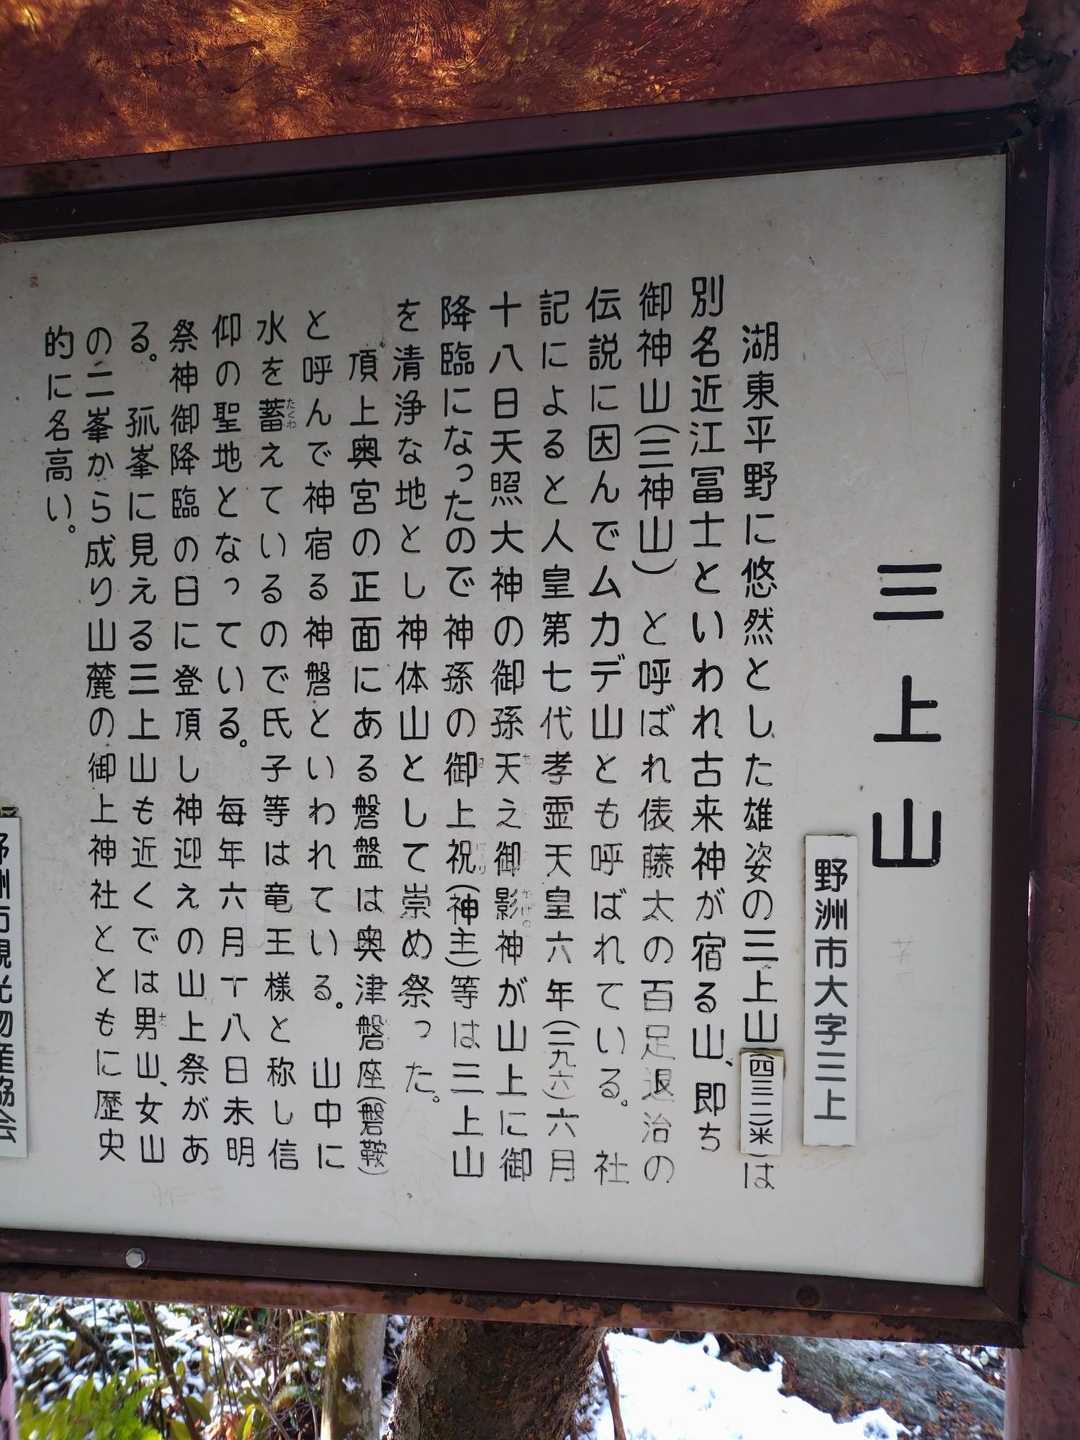 三上山
野洲市大字三上
湖東平野に悠然とした雄姿の三上山(四三二米)は
別名近江冨士といわれ古来神が宿る山、即ち
御神山(三神山)と呼ばれ俵藤太の百足退治の
伝説に因んでムカデ山とも呼ばれている。社
記によると人皇第七代孝霊天皇六年(三九六)六月
十八日天照大神の御孫天之御影神が山上に御
降臨になったので神孫の御上祝(神主)等は三上山
を清浄な地とし神体山として崇め祭った。
頂上奥宮の正面にある磐盤は奥津磐座(磐鞍)
と呼んで神宿る神磐といわれている。山中に
水を蓄えているので氏子等は竜王様と称し信
仰の聖地となっている。毎年六月十八日未明
祭神御降臨の日に登頂し神迎えの山上祭があ
る。孤峯に見える三上山も近くでは男山、女山
の二峯から成り山麓の御上神社とともに歴史
的に名高い。
野洲市観光物産協会